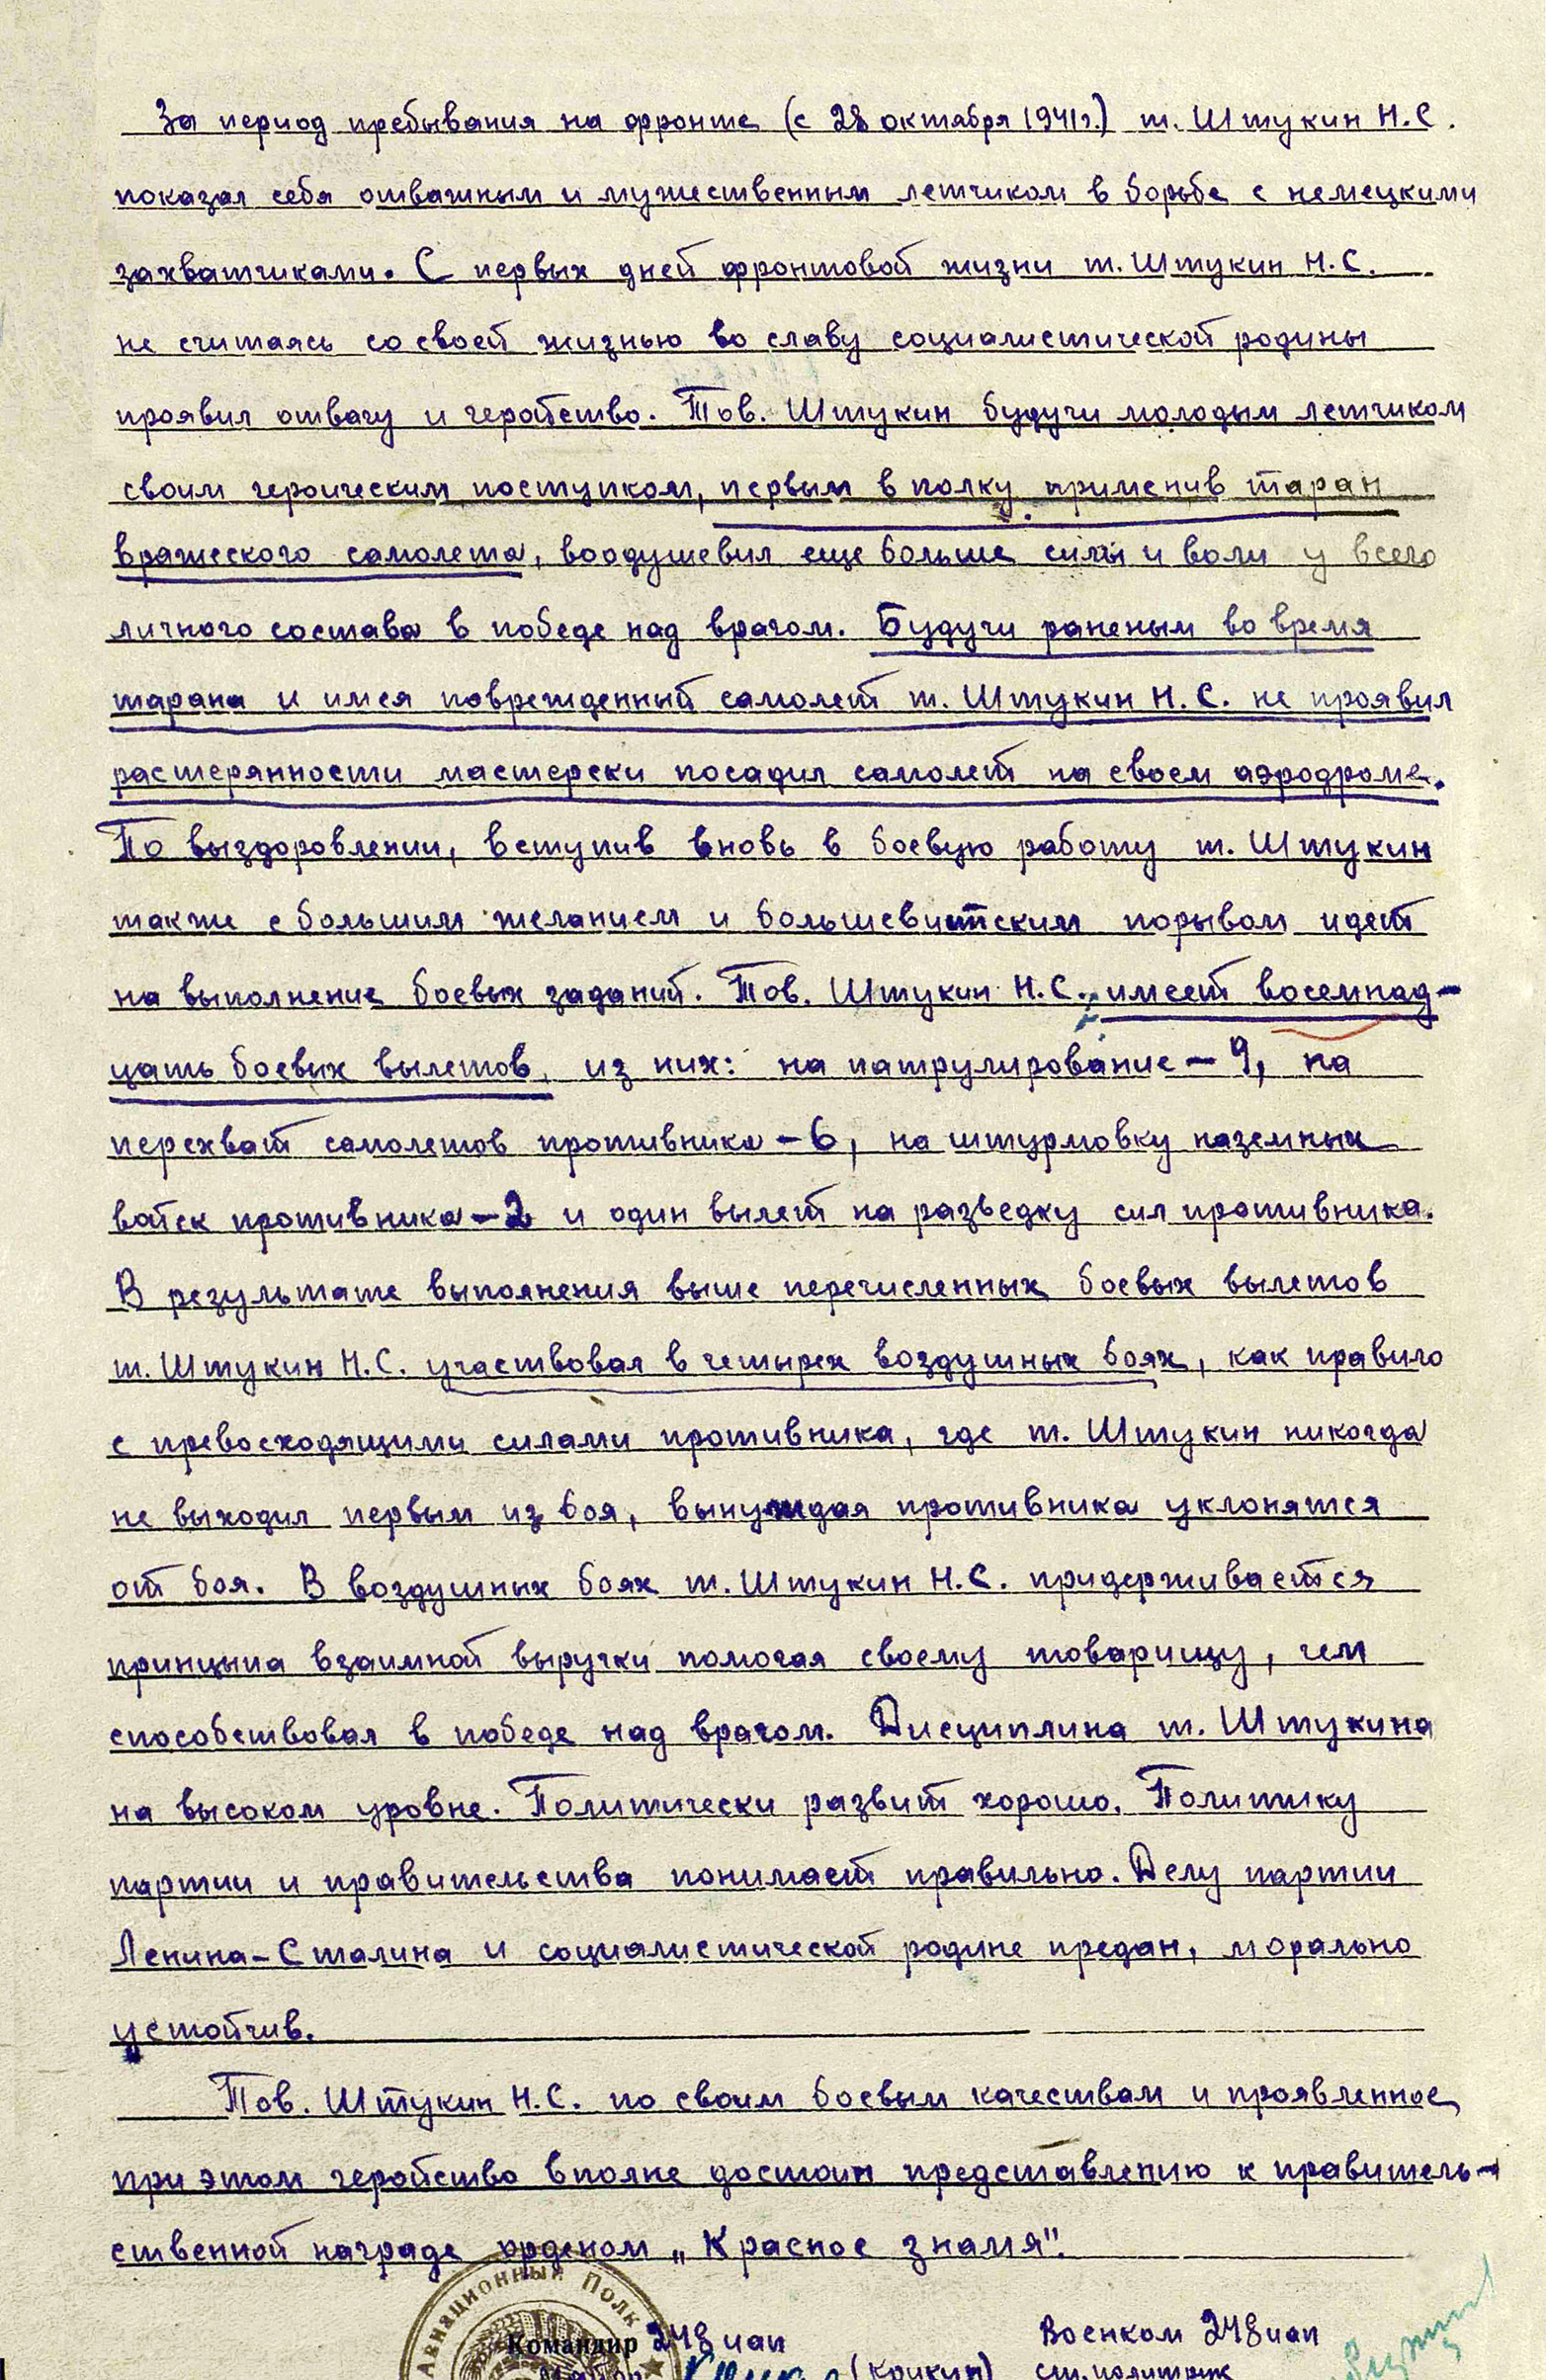 За период пребывания на фронте (с 28 октября 1941г.) т. Штукин Н.С.
показал себя отважным и мужественным летчиком в борьбе с немецкими
захватчиками. С первых дней фронтовой жизни т. Штукин Н.С.
не считаясь со своей жизнью во славу социалистической родины
проявил отвагу и геройство. Тов. Штукин будучи молодым летчиком
своим героическим поступком, первым в полку применив таран
вражеского самолета, воодушевил еще больше силы и воли у всего
личного состава в победе над врагом. Будучи раненым во время
тарана и имея поврежденный самолет т. Штукин Н.С. не проявил
растерянности мастерски посадил самолет на своем аэродроме.
По выздоровлении, вступив вновь в боевую работу т. Штукин
также с большим желанием и большевитским порывом идет
на выполнение боевых заданий. Тов. Штукин Н.С. имеет восемнад-
цать боевых вылетов, из них: на патрулирование – 9, на
перехват самолетов противника – 6, на штурмовку наземных
войск противника – 2 и один вылет на разведку сил противника.
В результате выполнения выше перечисленных боевых вылетов
т. Штукин Н.С. участвовал в четырех воздушных боях, как правило
с превосходящими силами противника, где т. Штукин никогда
не выходил первым из боя, вынуждая противника уклонятся
от боя. В воздушных боях т. Штукин Н.С. придерживается
принцыпа взаимной выручки помогая своему товарищу, чем
способствовал в победе над врагом. Дисциплина т. Штукина
на высоком уровне. Политически развит хорошо. Политику
партии и правительства понимает правильно. Делу партии
Ленина-Сталина и социалистической родине предан, морально
устойчив.
Тов. Штукин Н.С. по своим боевым качествам и проявленное
при этом геройство вполне достоин представлению к правитель-
ственной награде орденом „Красное знамя".
Авиационный Полк
Командир 248 иап Военком 248 иап
Майор (Крикин) ст. политрук